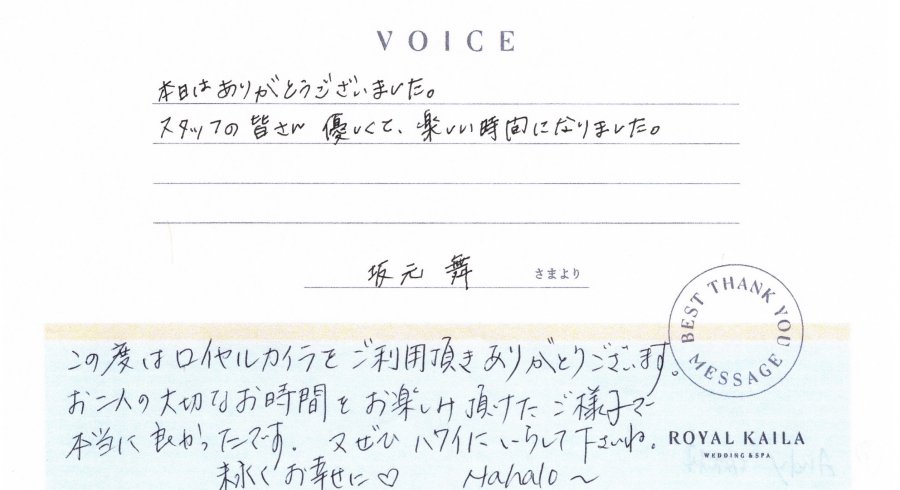 VOICE
本日はありがとうございました。
スタッフの皆さん 優しくて、楽しい時間になりました。
坂元 舞 さまより
BEST THANK YOU MESSAGE
この度はロイヤルカイラをご利用頂きありがとうございます。
お二人の大切なお時間をお楽しみ頂けたご様子で
本当に良かったです。又ぜひハワイにいらして下さいね。
ROYAL KAILA
WEDDING & SPA
末永くお幸せに♡ Mahalo～